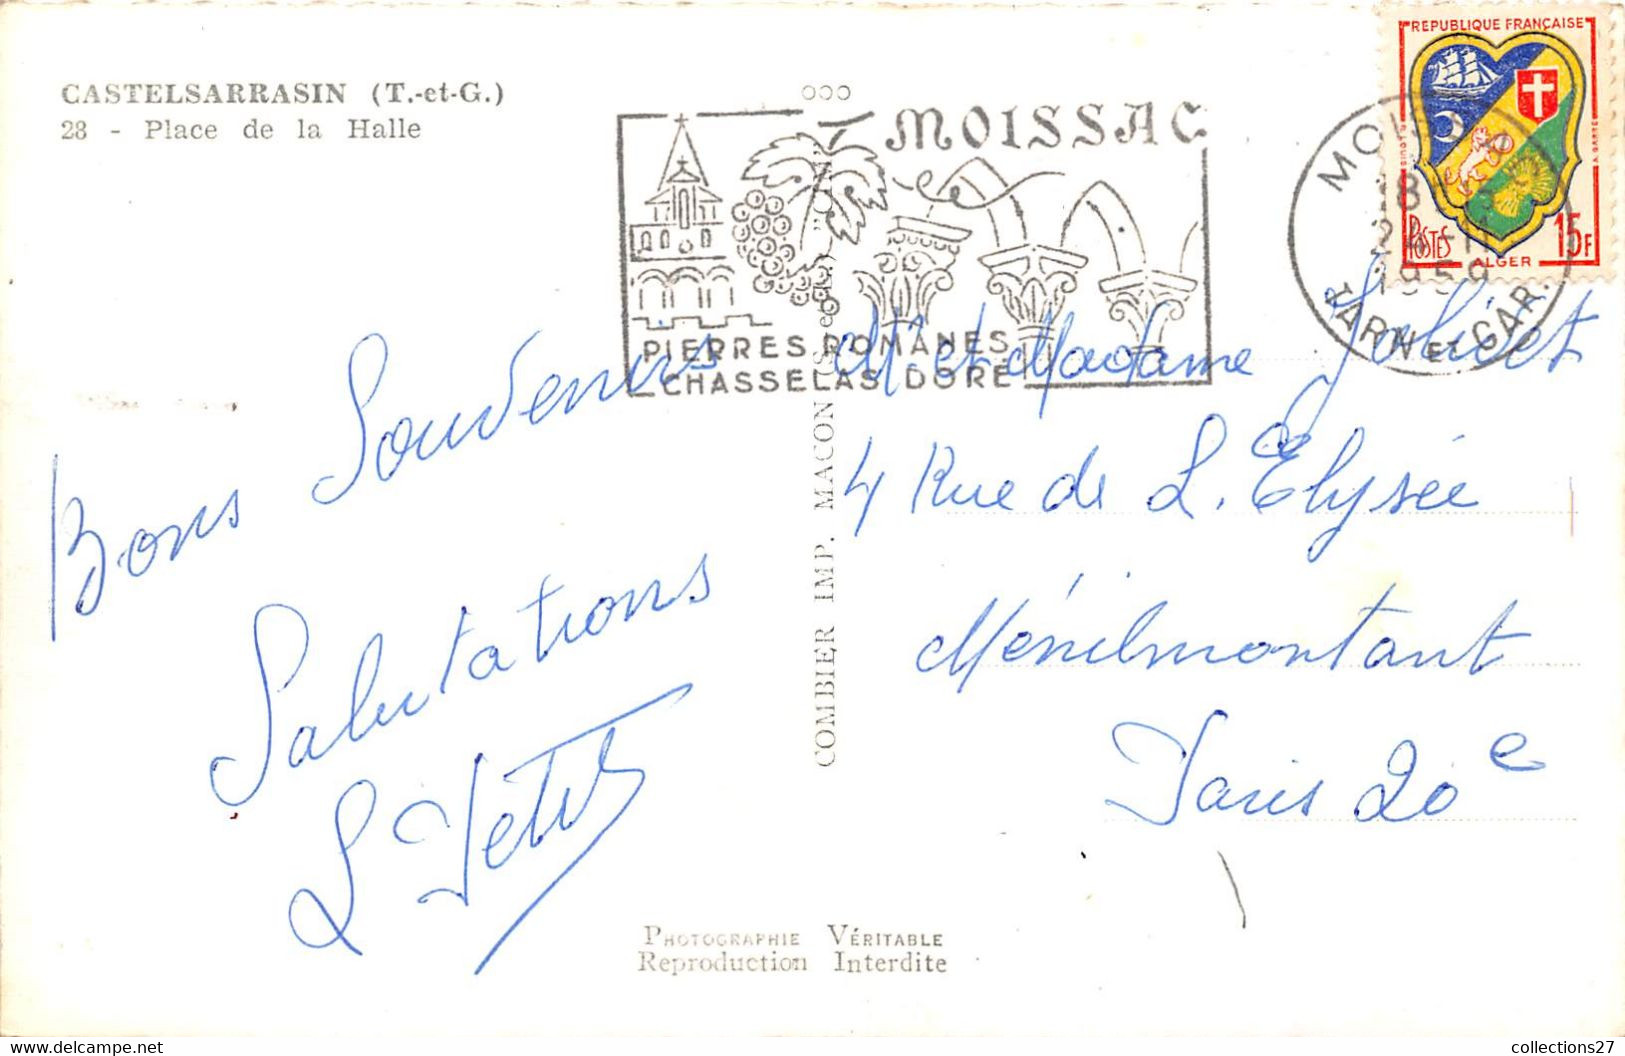 CASTELSARRASIN (T.-et-G.)
28 - Place de la Halle
MOISSAC
PIERRES ROMANES
CHASSELAS DORÉ
REPUBLIQUE FRANÇAISE
POSTES 15F
ALGER
24-11
1959
TARN ET GAR.
Bons Souvenirs
Salutations
M. et Madame
4 Rue de L. Elysée
Ménilmontant
Paris 20e
COMBIER IMP. MACON
PHOTOGRAPHIE VÉRITABLE
Reproduction Interdite
collections27